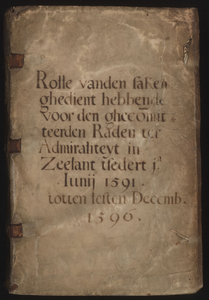 Rolle vanden saken
ghedient hebbende
voor den ghecomit
teerden Raden ter
Admiraliteyt in
Zeelant tsedert jᵃ
Iunij 1591.
totten lesten Decemb.
1596.